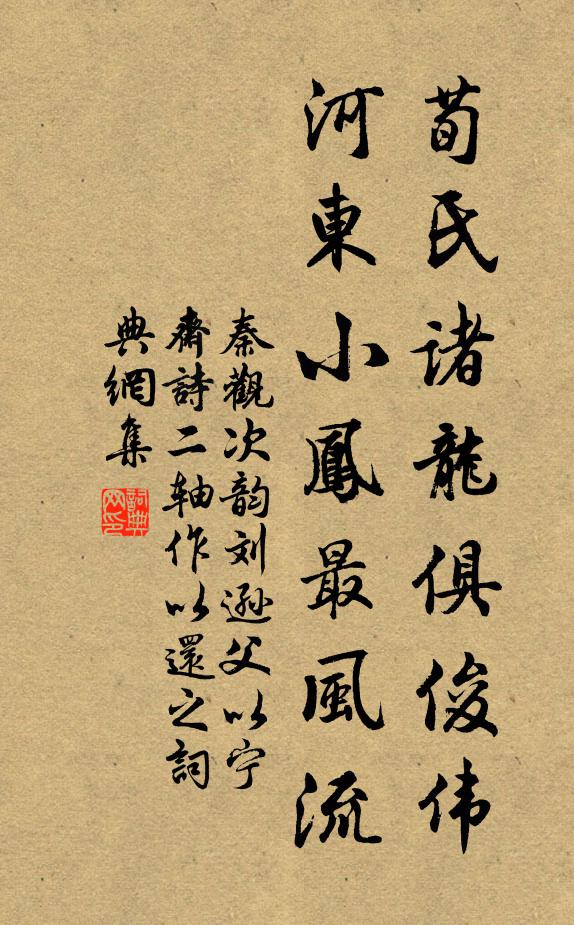 荀氏诸龍俱俊伟
河東小鳳最風流
秦觀次韵刘逊父以宁
齋詩二轴作以還之詞
典網集
詞典网印